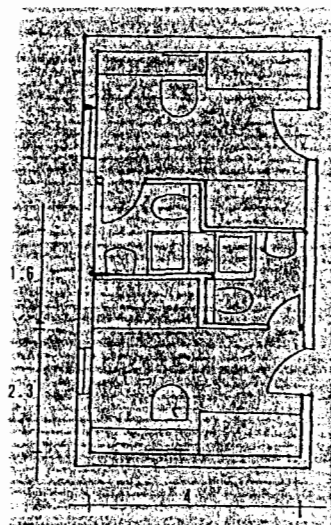 1.6
2.3
4